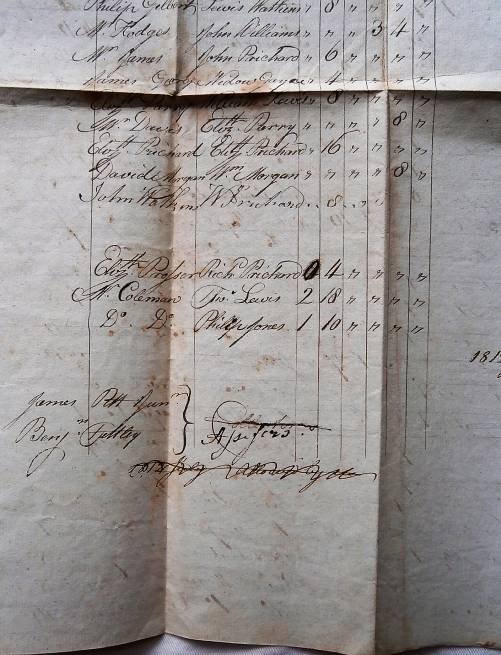 Philip Gilbert Lewis Watkins " 8 " " " "
Mr. Hodges John Williams " " " 3 4 "
Mr. James John Prichard " 6 " " " "
James Widow " 4 " " " "
Lewis " 8 " " " "
Mr. Davis Eliz. Parry " " " " 8 "
Elizth. Prichard Edth. Prichard " 16 " " " "
David Morgan Wm. Morgan " " " " 8 "
John Watkins W. Prichard " 8 " "
Elizth. Prosser Richd. Prichard 0 4 " " " "
Mr. Coleman Thos. Lewis 2 18 " " " "
Do. Do. Philip Jones 1 10 " " " "
181
James Pitt Junr.
Benjn.
Assessors